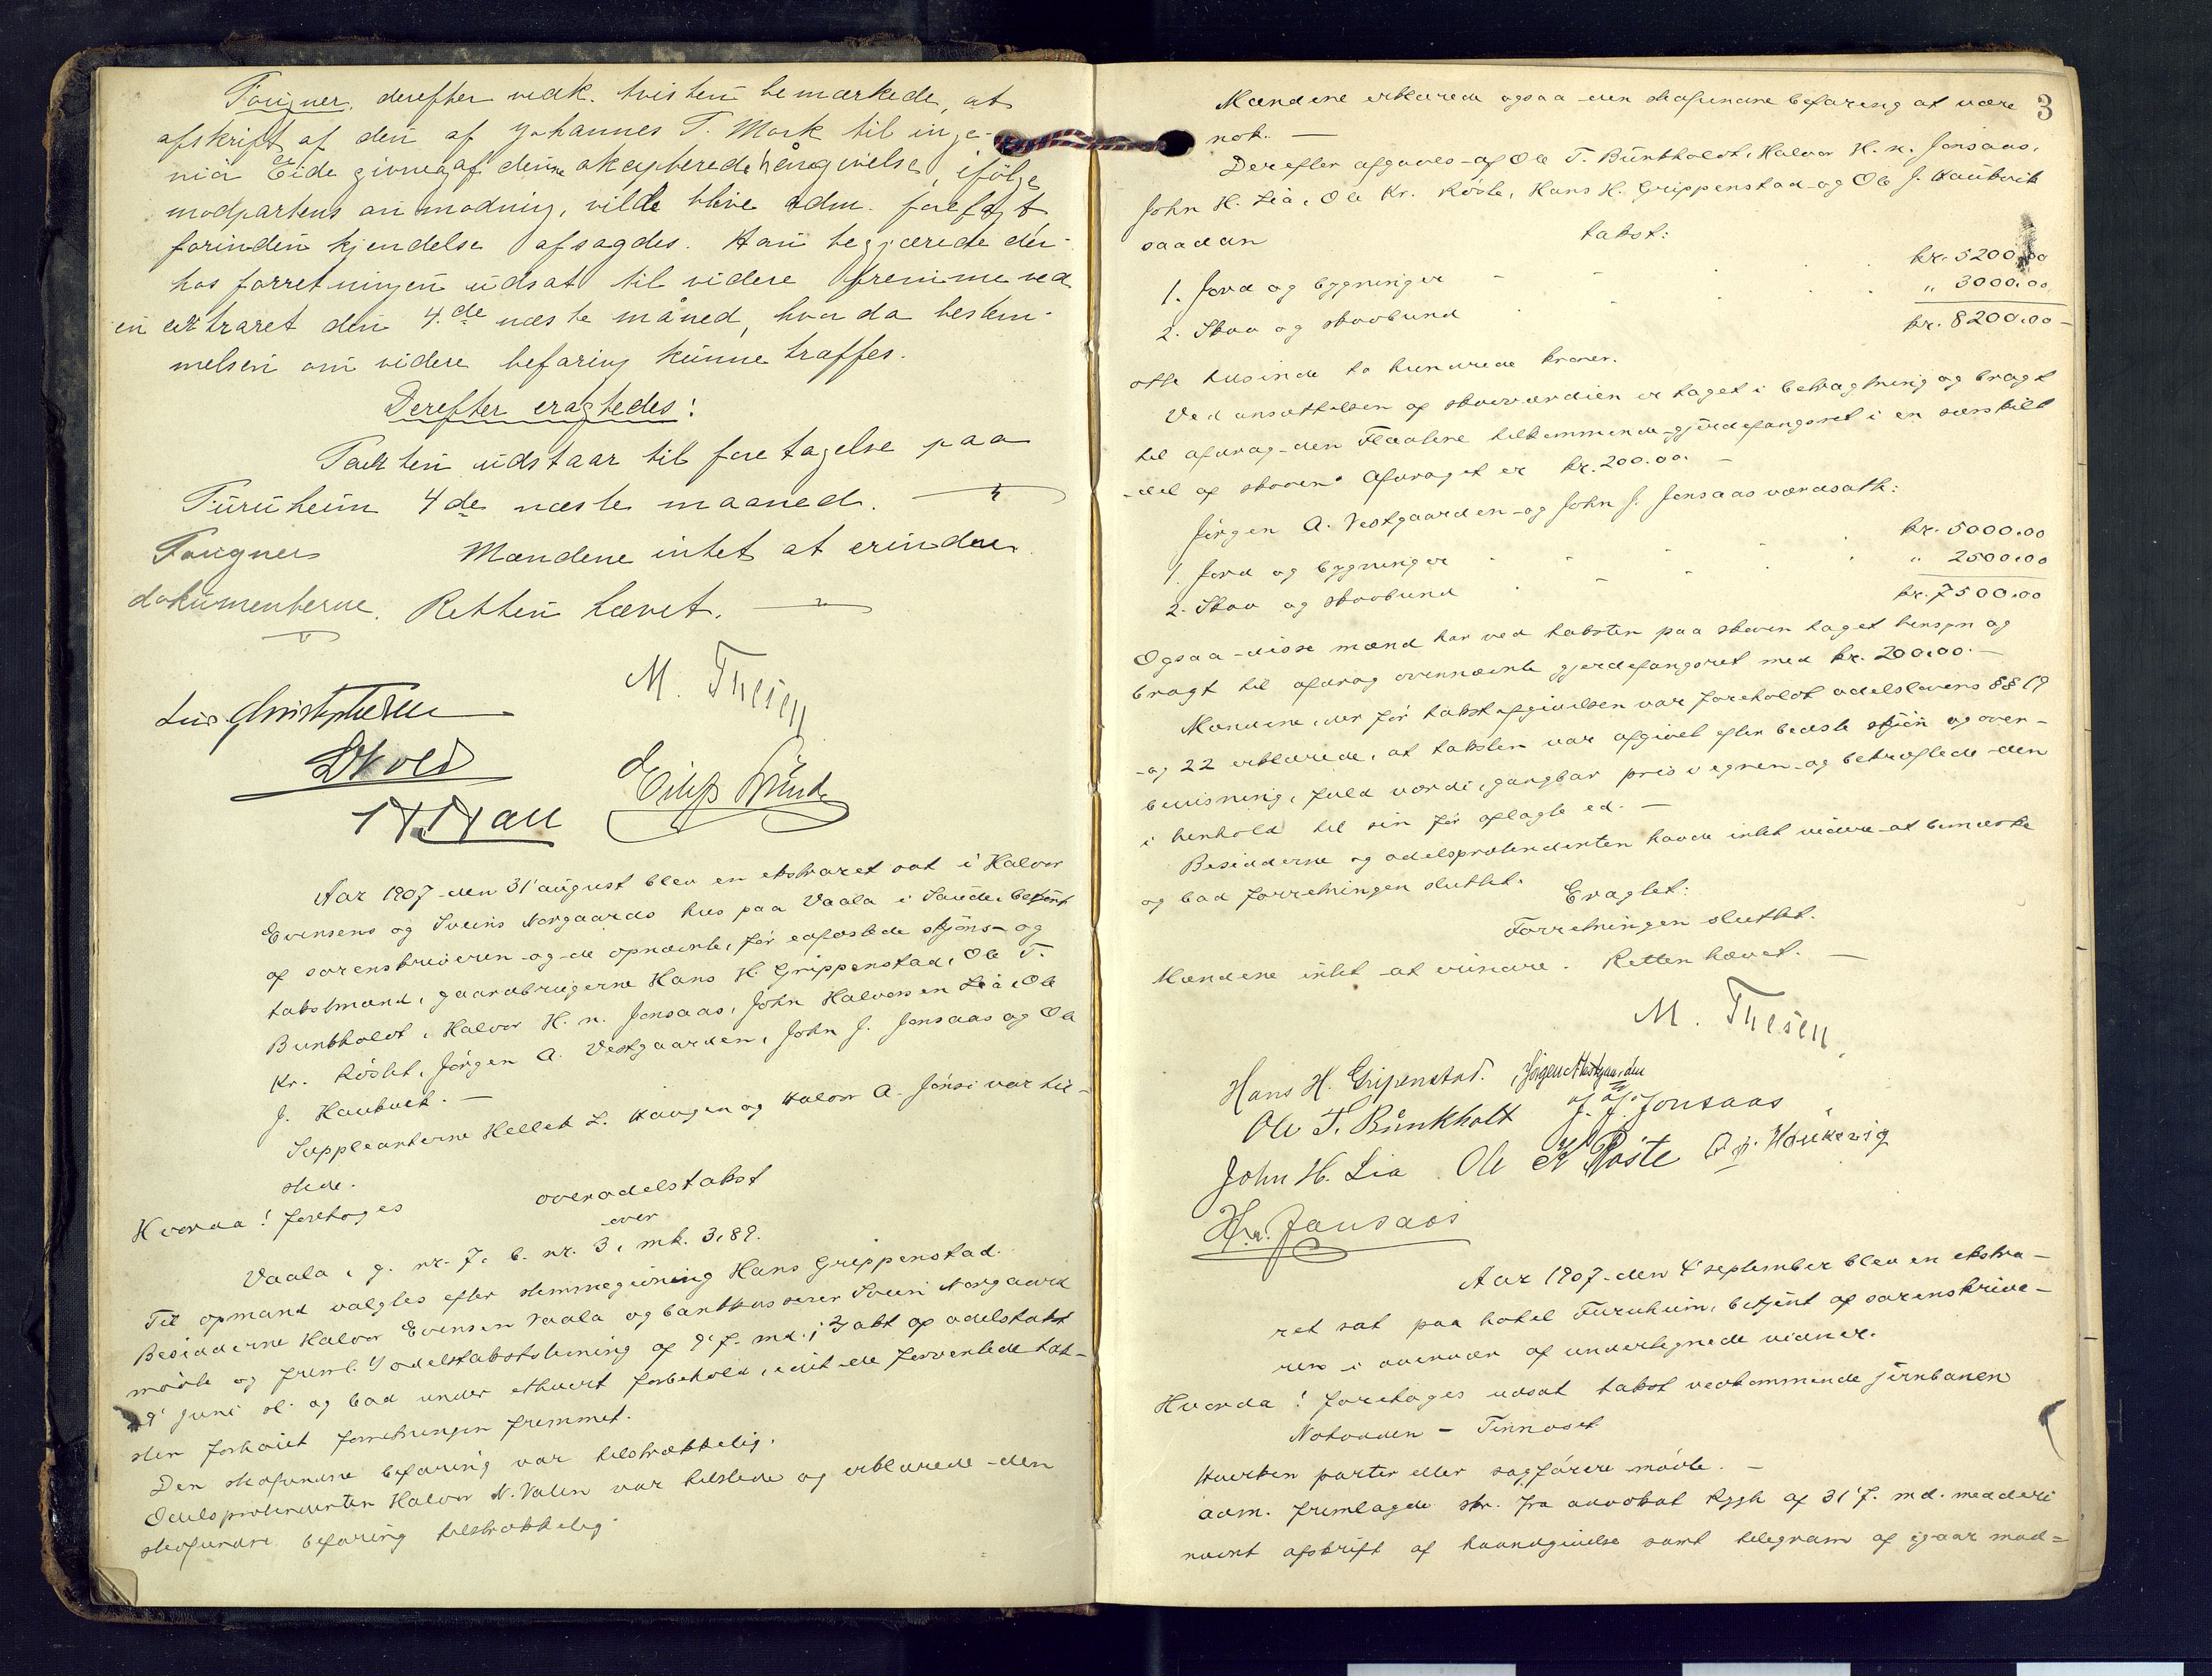 Fougner, derefter vedk. tvisten bemærkede, at
afskrift af den af Johannes T. Mork til inge-
niør Eide givne, af denne aksepterede håndgivelse, ifølge
modpartens anmodning, vilde blive adm. forelagt
forinden kjendelse afsagdes. Han begjærede der-
hos forretningen udsat til videre fremme ved
en extraret den 4.de næste måned, hvorda bestem-
melsen om videre befaring kunne træffes.
Derefter eragtedes:
Taksten udstaar til foretagelse paa
Furuheim 4de næste maaned.
Fougner Mændene intet at erindre.
dokumenterne. Retten hævet.
M. Thesen
Aar 1907 den 31' august blev en ekstraret sat i Halvor
Evensens og Sveins Norgaards hus paa Vaala i Saude, betjent
af sorenskriveren og de opnævnte, før edfæstede skjøns- og
takstmænd, gaardbrugerne Hans H. Grippenstad, Ole T.
Bunkholdt, Halvor H. n. Jonsaas, John Halvorsen Lia, Ole
Kr. Röslet, Jörgen A. Vestgaarden, John J. Jonsaas og Ole
J. Haukvik. —
Suppleanterne Hellek L. Haugen og Halvor A. Jönsi var til-
stede.
Hvorda! foretoges overodelstakst
over
Vaala, g. nr. 7, b. nr. 3, mk. 3,89.
Til opmand valgtes efter stemmegivning Hans Grippenstad.
Besidderne Halvor Evensen Vaala og bankkasserer Svein Norgaard
mødte og freml. 1) odelstakststevning af 9' f. md., 2) akt af odelstakst
29' juni sl. og bad under ethvert forbehold, idet de forventede tak-
sten forhøiet forretningen fremmet.
Den stedfundne befaring var tilstrækkelig.
Odelsprætendenten Halvor N. Valen var tilstede og erklærede den
stedfundne befaring tilstrækkelig.
3
Mændene erklærede ogsaa den stedfundne befaring at være
nok. —
Derefter afgaves af Ole T. Bunkholdt, Halvor H. n. Jonsaas,
John H. Lia, Ole Kr. Rösle, Hans H. Grippenstad og Ole J. Haukvik
saadan takst:
1. Jord og bygninger kr. 5200,00
2. Skov og skovbund " 3000,00
kr. 8200,00
otte tusinde to hundrede kroner.
Ved ansættelsen af skovværdien er taget i betragtning og bragt
til afdrag den Flaatene tilkommende gjerdefangsret i en særskilt
del af skoven. Afdraget er kr. 200.00. —
Jörgen A. Vestgaarden og John J. Jonsaas værdsatte:
1. Jord og bygninger kr. 5000,00
2. Skov og skovbund " 2500,00
kr. 7500,00
Ogsaa disse mænd har ved taksten paa skoven taget hensyn og
bragt til afdrag ovennævnte gjerdefangsret med kr. 200,00. —
Mændene, der før takstafgivelsen var foreholdt odelslovens §§ 19
og 22 erklærede, at taksten var afgivet efter bedste skjön og over-
bevisning, fuld værdi, gangbar pris i egnen og bekræftede den
i henhold til sin før aflagte ed. —
Besidderne og odelsprætendenten havde intet videre at bemærke
og bad forretningen sluttet.
Eragtet:
Forretningen sluttet.
Mændene intet at erindre. Retten hævet. —
M. Thesen
Hans H. Gripenstad. Jörgen A Vestgaarden
Ole T. Bunkholt J. J. Jonsaas
John H. Lia Ole K Röste O. J. Houkevig
H. n. Jonsaas
Aar 1907 den 4' september blev en ekstra-
ret sat paa hotel Furuheim, betjent af sorenskrive-
ren i overvær af undertegnede vidner.
Hvorda! foretoges udsat takst vedkommende jernbanen
Notodden – Tinnoset.
Hverken parter eller sagførere mødte. —
Adm. fremlagde skr. fra advokat Rygh af 31' f. md. med deri
nævnt afskrift af haandgivelse samt telegram af igaar mod=